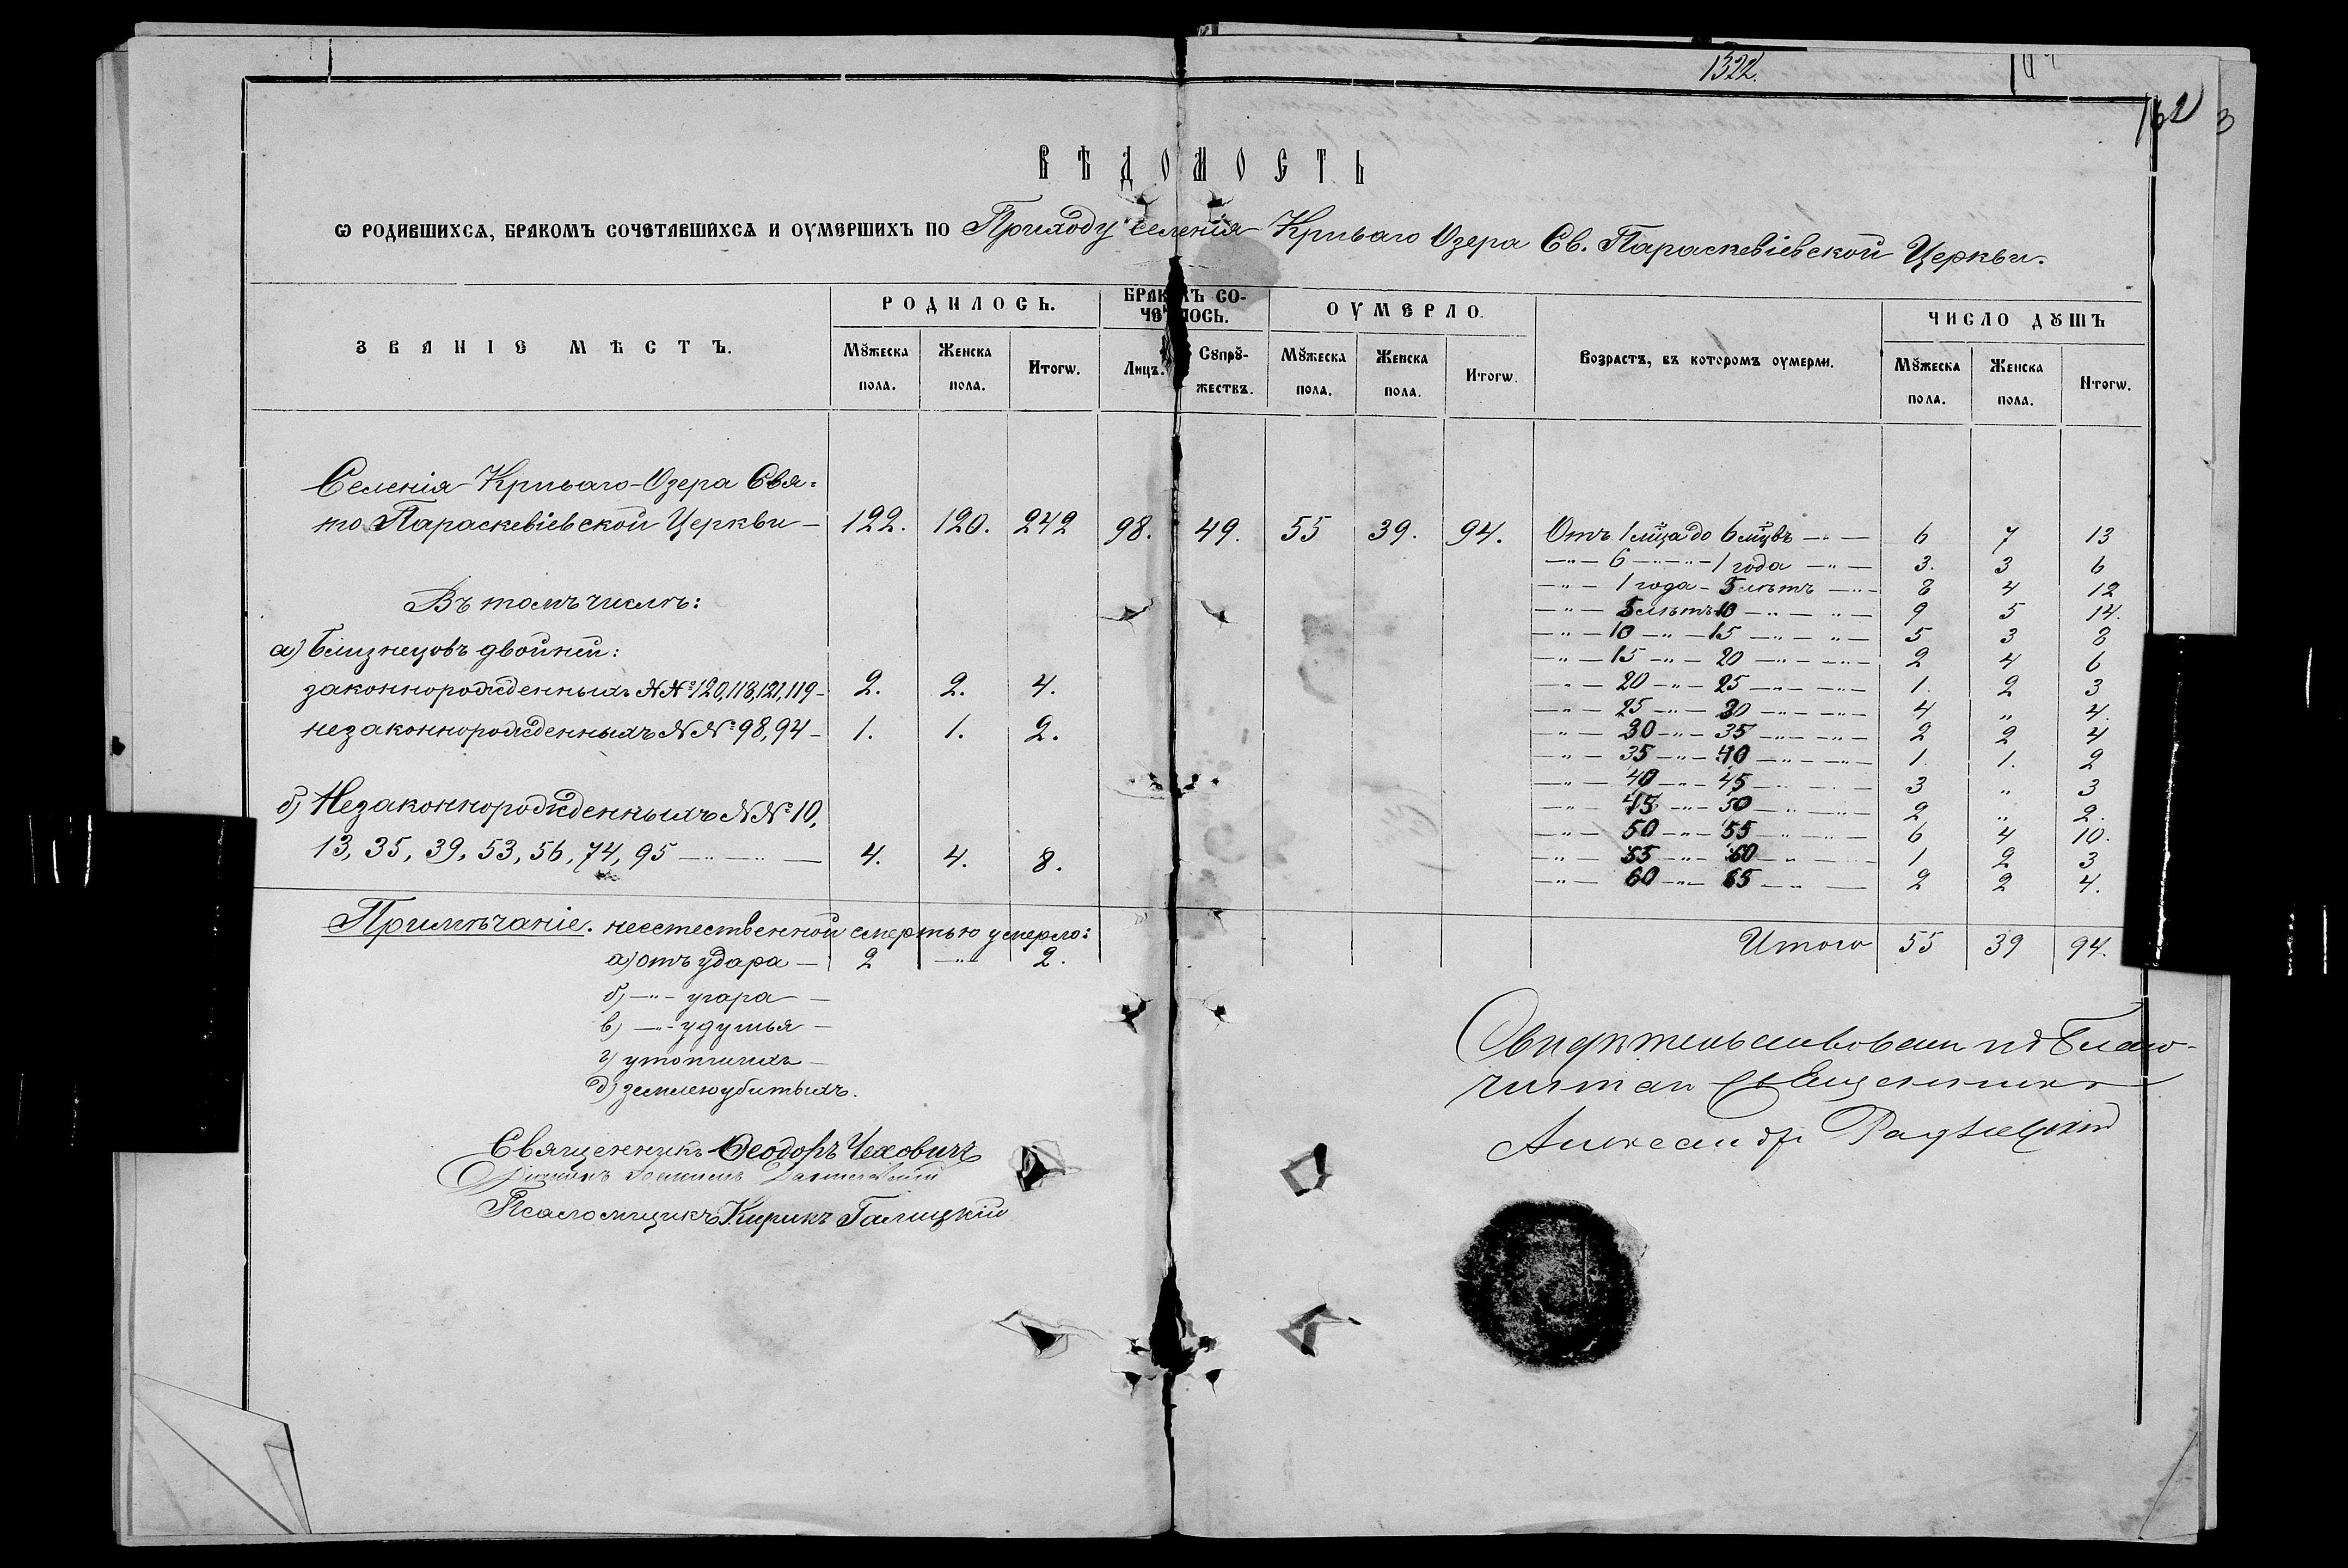 1322.
162
3
ВѢДОМОСТЬ
Ѡ РОДИВШИХСѦ, БРАКОМЪ СОЧЕТАВШИХСѦ И ОУМЕРШИХЪ ПО Приходу селенія Криваго Озера Св. Параскевіевской Церкви.
ЗВАНІЕ МѢСТЪ. РОДИЛОСЬ. БРАКОМЪ СО- ОУМЕРЛО. Возрастъ, въ которомъ оумерли. ЧИСЛО ДꙊШЪ
ЧЕТАЛОСЬ.
Мꙋжеска Женска Итогѡ. Лицъ. Сꙋпрꙋ- Мꙋжеска Женска Итогѡ. Мꙋжеска Женска Итогѡ.
пола. пола. жествъ. пола. пола. пола. пола.
Селенія Криваго-Озера Свя-
то Параскевіевской Церкви — 122. 120. 242 98. 49. 55 39. 94. Отъ 1 мца до 6 мцвъ — 6 7 13
—"— 6 —"—"— 1 года —"— 3. 3 6
—"— 1 года — 5 лѣтъ —"— 8 4 12
—"— 5 лѣтъ 10 —"—"— 9 5 14.
—"— 10 —"— 15 —"—"— 5 3 8
—"— 15 —"— 20 —"—"— 2 4 6
—"— 20 —"— 25 —"—"— 1. 2 3
—"— 25 —"— 30 —"—"— 4 " 4.
—"— 30 —"— 35 —"—"— 2 2 4
—"— 35 —"— 40 —"—"— 1. 1. 2
—"— 40 —"— 45 —"—"— 3 " 3
—"— 45 —"— 50 —"—"— 2 " 2.
—"— 50 —"— 55 —"—"— 6 4 10.
—"— 55 —"— 60 —"—"— 1 2 3
—"— 60 —"— 65 —"— 2 2 4.
Итого 55 39 94.
Въ томъ числѣ:
а) Близнецовъ двойней:
законнорожденныхъ №№ 120, 118, 121, 119 — 2. 2. 4.
незаконнорожденныхъ №№ 98, 94 — 1. 1. 2.
б) Незаконнорожденныхъ №№ 10,
13, 35, 39, 53, 56, 74, 95 —"—"— 4. 4. 8.
Примѣчаніе. неестественной смертью умерло:
а) отъ удара — 2 —"— 2.
б) —"— угара —
в) —"— удушья —
г) утопшихъ —
д) землею убитыхъ.
Священникъ Ѳеодоръ Чеховичъ
Псаломщикъ Кирикъ Галицкій
Свидѣтельствовалъ Благо-
чинный Священникъ
Александръ